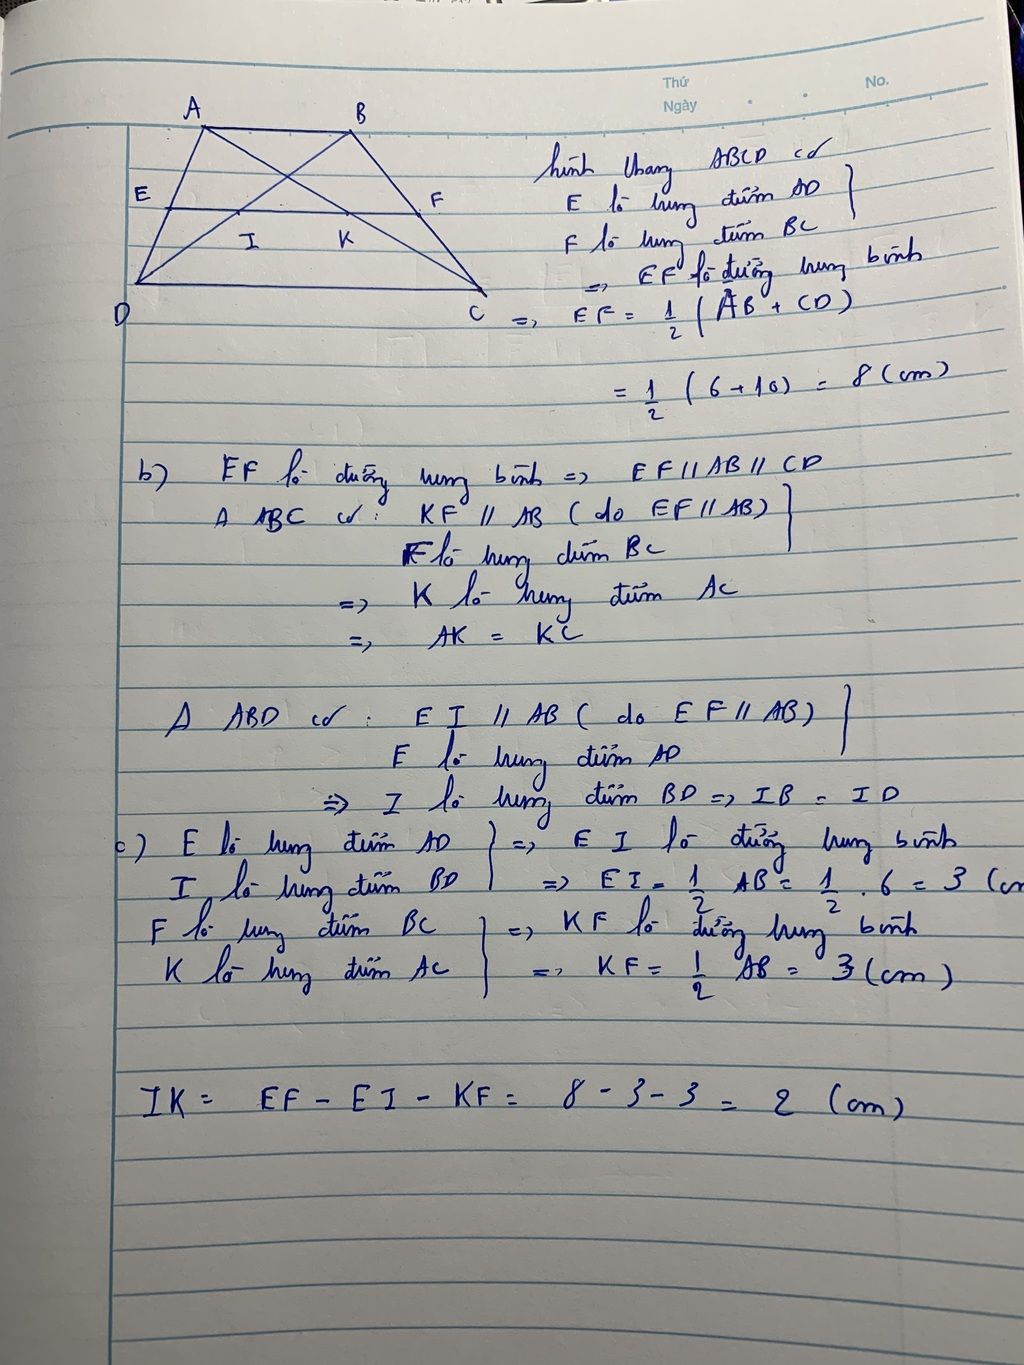 Thứ
No.
Ngày
A
B
E
F
I
K
D
C
hình thang ABCD có
E là trung điểm AD
F là trung điểm BC
=> EF là đường trung bình
=> EF = 1/2 (AB + CD)
= 1/2 (6+10) = 8 (cm)
b) EF là đường trung bình => EF // AB // CD
Δ ABC có: KF // AB (do EF // AB)
F là trung điểm BC
=> K là trung điểm AC
=> AK = KC
Δ ABD có: EI // AB (do EF // AB)
E là trung điểm AD
=> I là trung điểm BD => IB = ID
c) E là trung điểm AD => EI là đường trung bình
I là trung điểm BD => EI = 1/2 AB = 1/2 . 6 = 3 (cm
F là trung điểm BC => KF là đường trung bình
K là trung điểm AC => KF = 1/2 AB = 3 (cm)
IK = EF - EI - KF = 8 - 3 - 3 = 2 (cm)